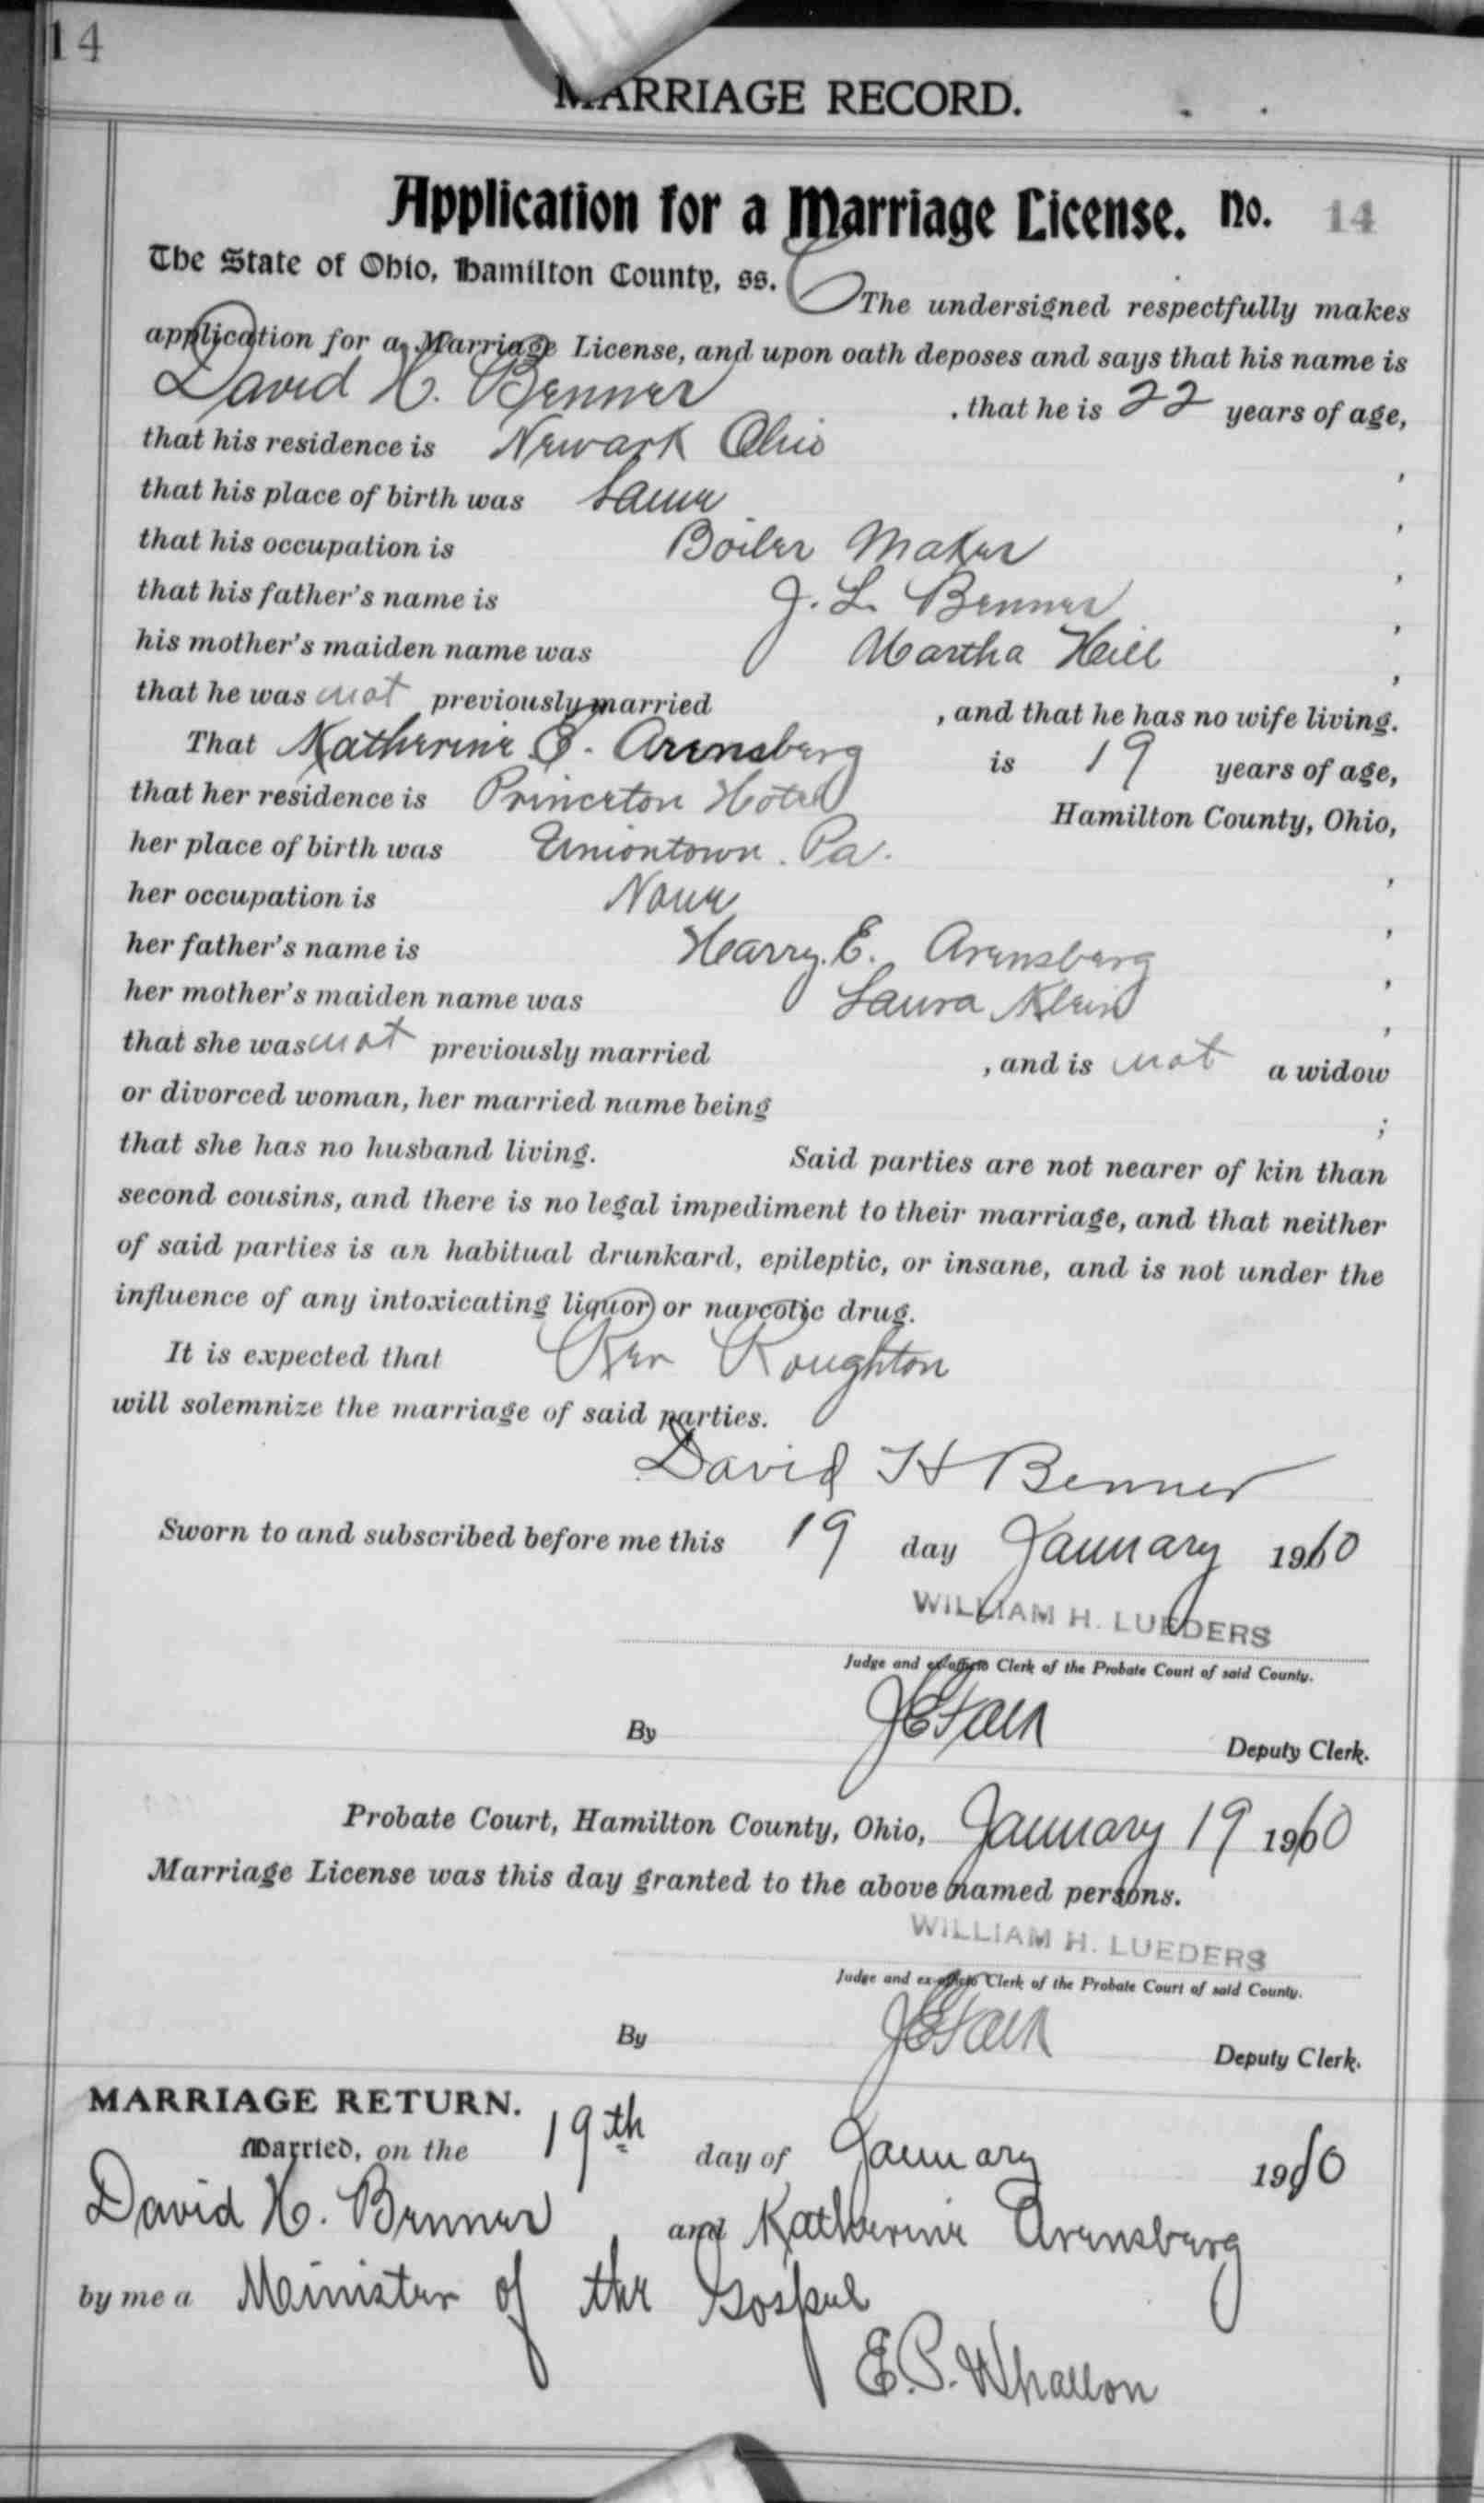 14
MARRIAGE RECORD.
Application for a Marriage License. No. 14
The State of Ohio, Hamilton County, ss.
The undersigned respectfully makes
application for a Marriage License, and upon oath deposes and says that his name is
David H. Benner, that he is 22 years of age,
that his residence is Newark Ohio,
that his place of birth was Same,
that his occupation is Boiler Maker,
that his father's name is J. L. Benner,
his mother's maiden name was Martha Hill,
that he was not previously married, and that he has no wife living.
That Katherine E. Arensberg is 19 years of age,
that her residence is Princeton Hotel Hamilton County, Ohio,
her place of birth was Uniontown. Pa.,
her occupation is None,
her father's name is Harry. E. Arensberg,
her mother's maiden name was Laura Klein,
that she was not previously married, and is not a widow
or divorced woman, her married name being ;
that she has no husband living. Said parties are not nearer of kin than
second cousins, and there is no legal impediment to their marriage, and that neither
of said parties is an habitual drunkard, epileptic, or insane, and is not under the
influence of any intoxicating liquor or narcotic drug.
It is expected that Rev Roughton
will solemnize the marriage of said parties.
David H Benner
Sworn to and subscribed before me this 19 day January 1910
WILLIAM H. LUEDERS
Judge and ex-officio Clerk of the Probate Court of said County.
By Deputy Clerk.
Probate Court, Hamilton County, Ohio, January 19 1910
Marriage License was this day granted to the above named persons.
WILLIAM H. LUEDERS
Judge and ex-officio Clerk of the Probate Court of said County.
By Deputy Clerk.
MARRIAGE RETURN.
Married, on the 19th day of January 1910
David H. Benner and Katherine Arensberg
by me a Minister of the Gospel
E. P. Whallon